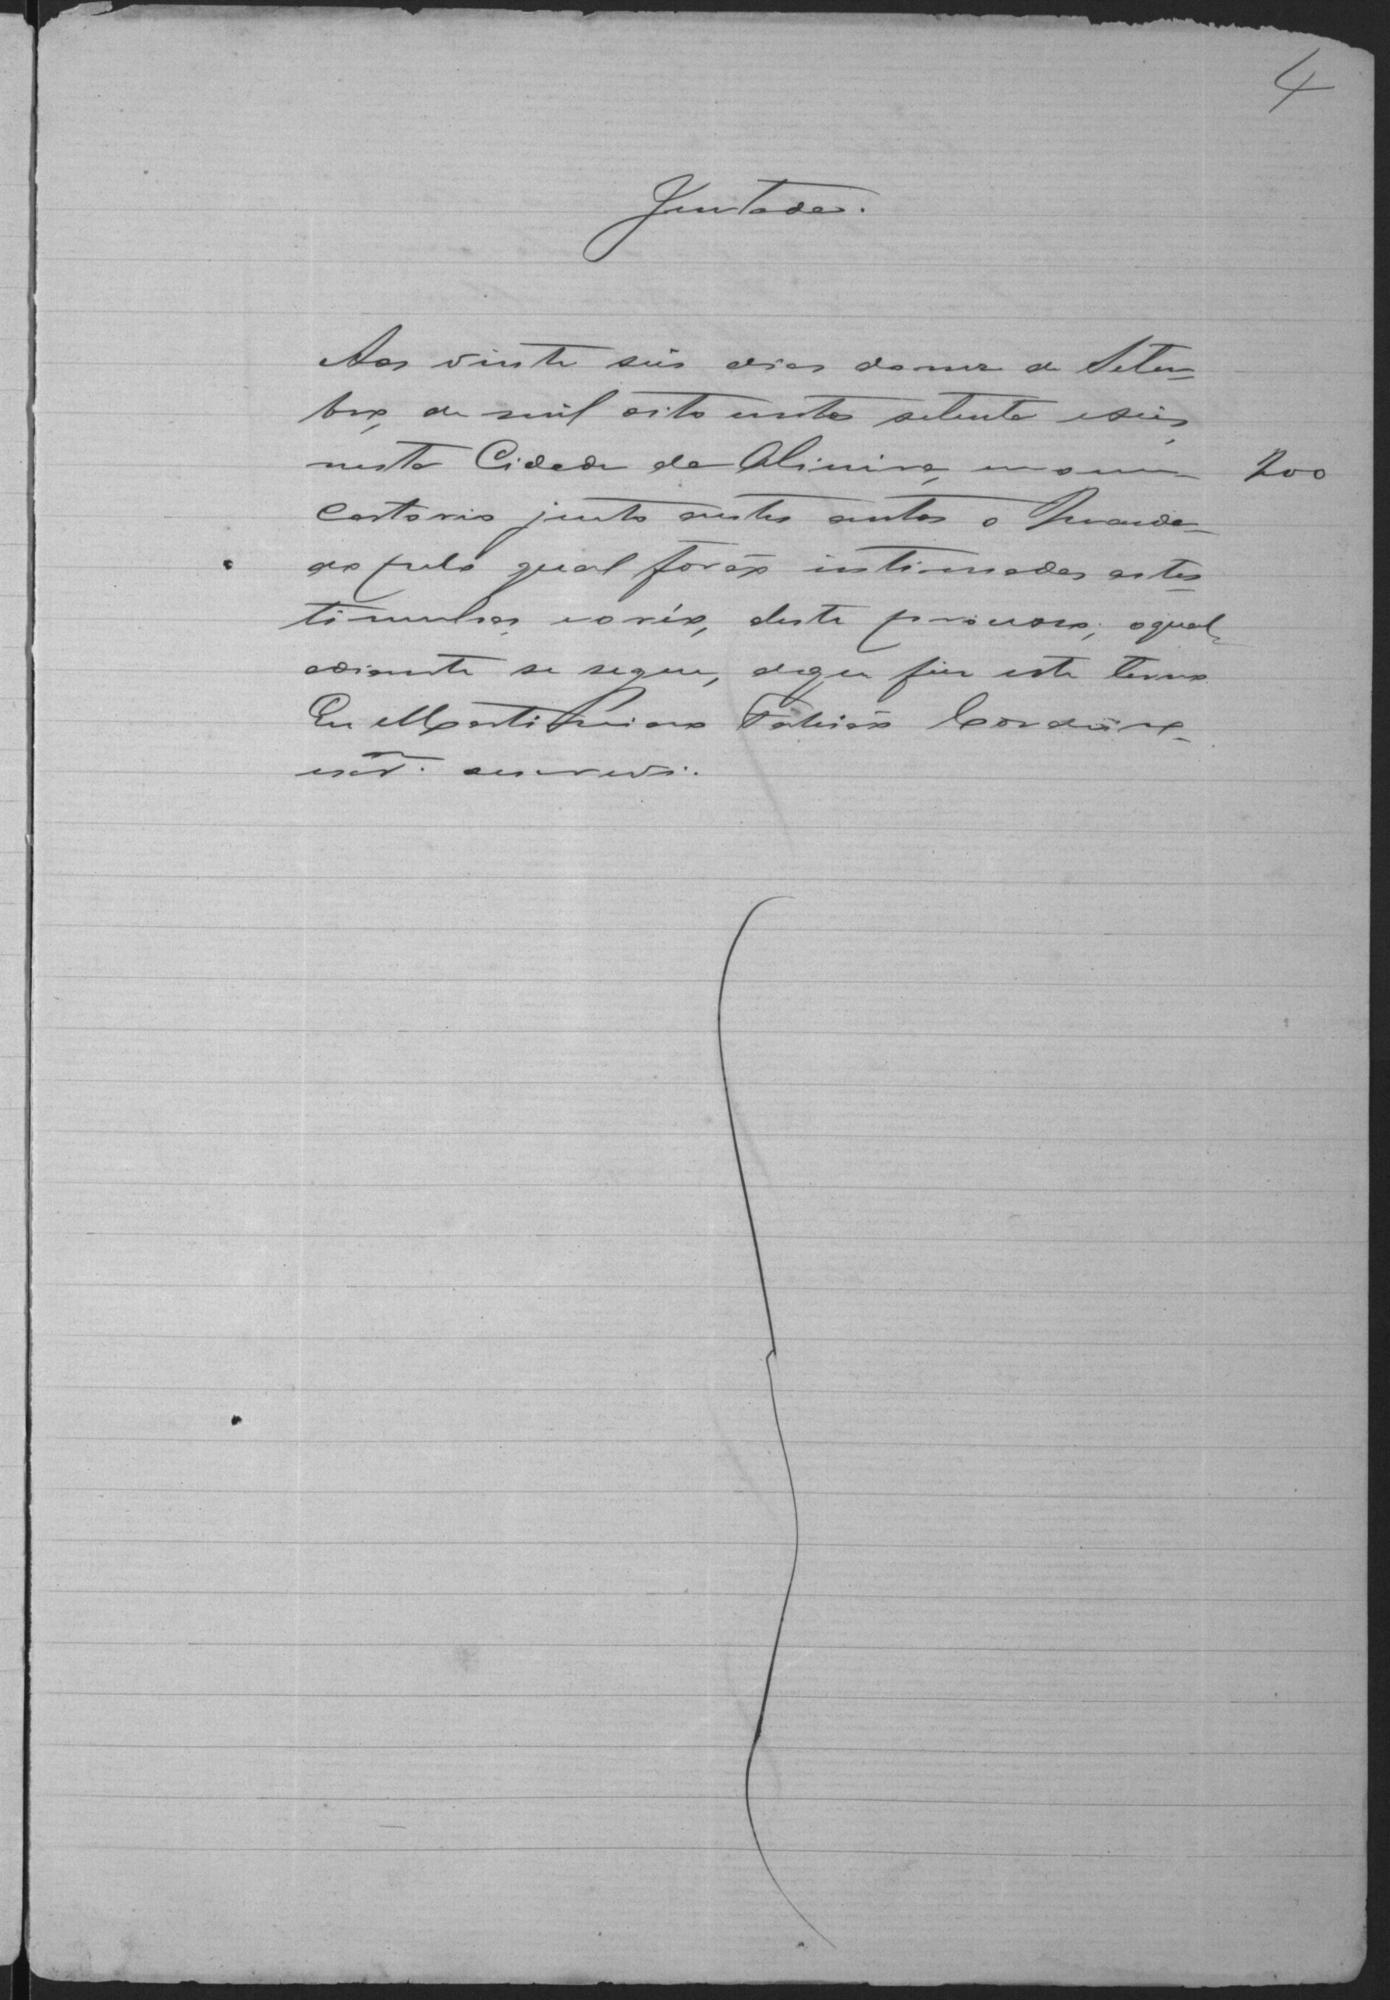 4
Juntada.
Aos vinte seis dias do mez de Setem=
bro, de mil oito centos setenta e seis,
nesta Cidade de Oliveira, em meu
200
Cartorio junto a estes autos o Manda-
do pelo qual foraõ intimadas as tes=
timunhas, e o réo, deste processo; o qual
adiante se segue, do que fiz este termo
Eu Martiniano Cordeiro
escr.m escrevi.